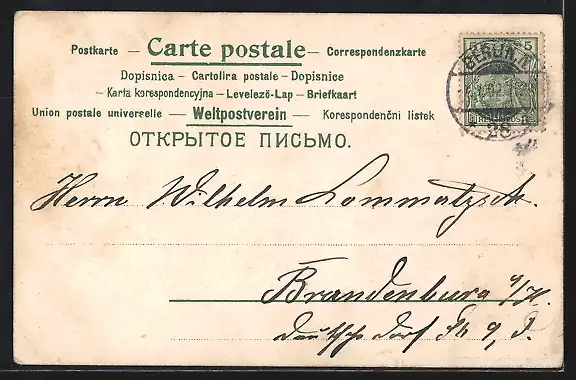 Postkarte – Carte postale – Correspondenzkarte
Dopisnica – Cartolira postale – Dopisnice
– Karta korespondencyjna – Levelező-Lap – Briefkaart
Union postale universelle – Weltpostverein – Korespondenčni listek
ОТКРЫТОЕ ПИСЬМО.
5 5
BERLIN
28
Herrn Wilhelm Lommatzsch.
Brandenburg a/H.